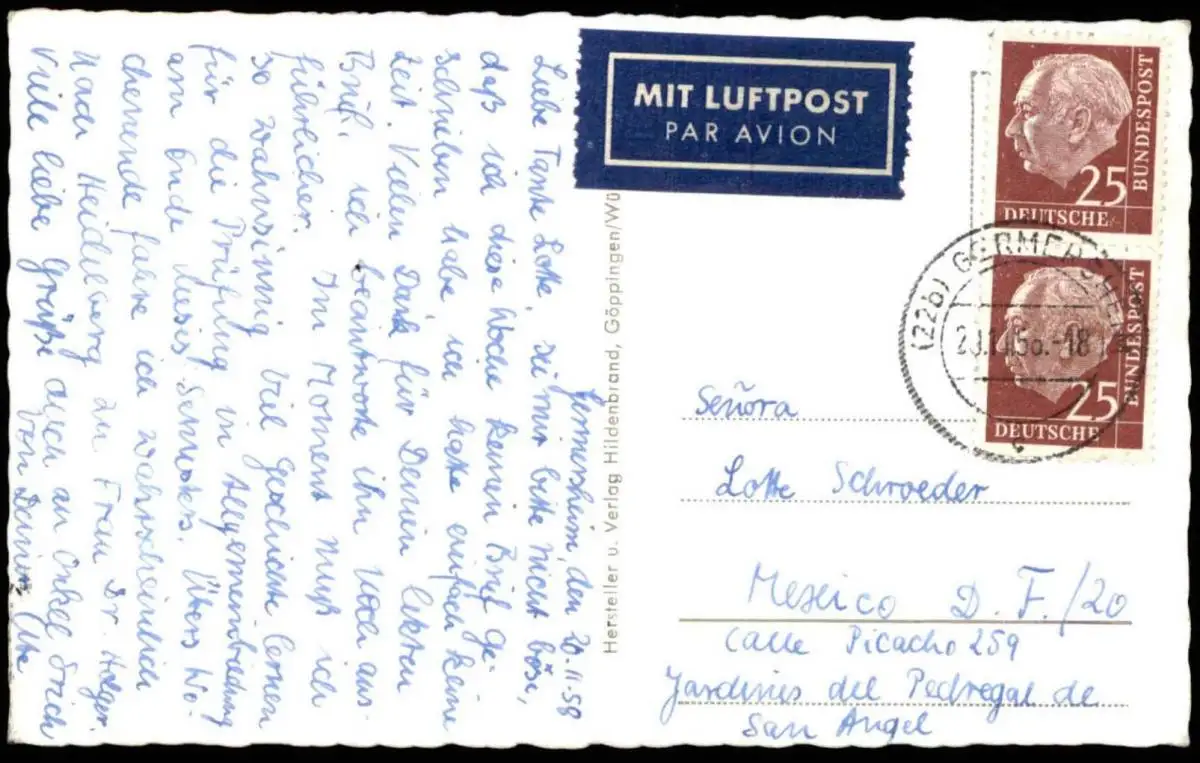 Germersheim, den 20.11.58
Liebe Tante Lotte, sei mir bitte nicht böse,
daß ich diese Woche keinen Brief ge-
schrieben habe, ich hatte einfach keine
Zeit. Vielen Dank für Deinen letzten
Brief, ich beantworte ihn noch aus-
führlicher. Im Moment muß ich
so wahnsinnig viel Geschichte lernen
für die Prüfung in Allgemeinbildung
am Ende dieses Semesters. Übers Wo-
chenende fahre ich wahrscheinlich
nach Heidelberg zu Frau Dr. Holger.
Viele liebe Grüße auch an Onkel Erich
von Deiner Ute
Hersteller u. Verlag Hildenbrand, Göppingen/Wü
MIT LUFTPOST
PAR AVION
25
DEUTSCHE
BUNDESPOST
25
DEUTSCHE
BUNDESPOST
(22b) GERMERSHEIM
-18
c
Señora
Lotte Schroeder
Mexico D. F./20
Calle Picacho 259
Jardines del Pedregal de
San Angel